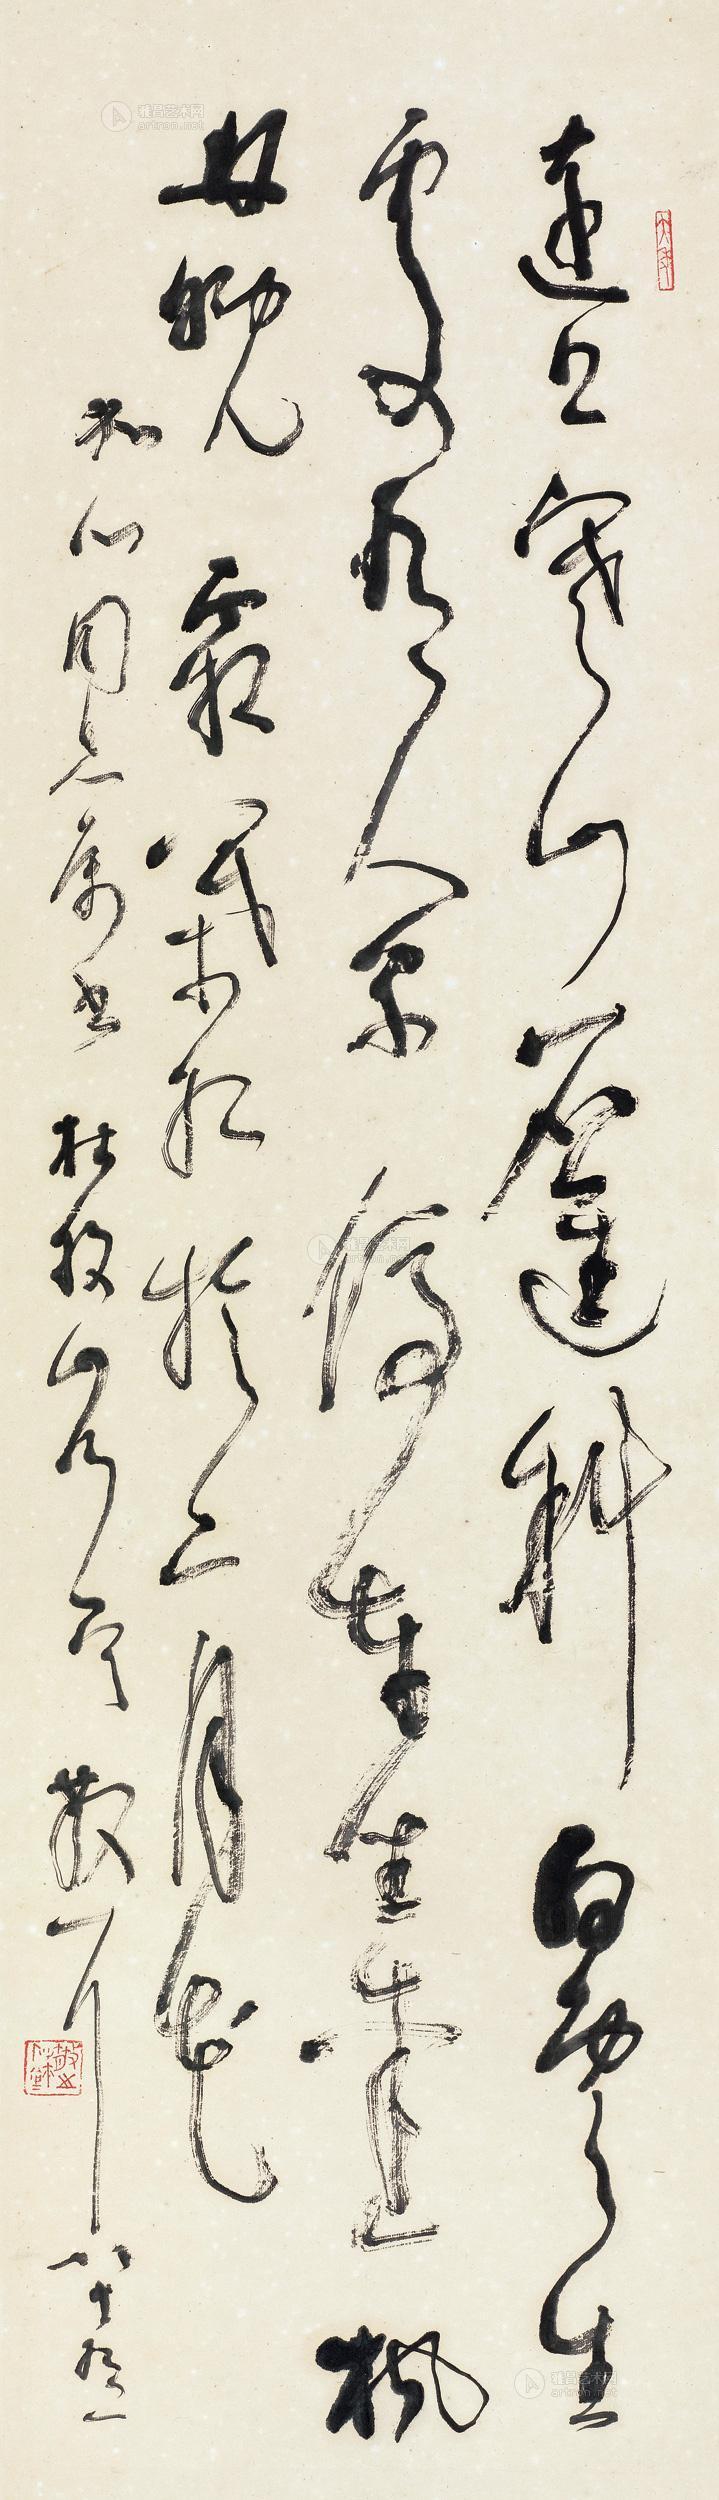 遠上寒山石逕斜白雲生
處有人家停車坐愛楓
林晚霜葉紅於二月花
同志属书 杜牧山行 散耳 八十
雅昌艺术网
artron.net